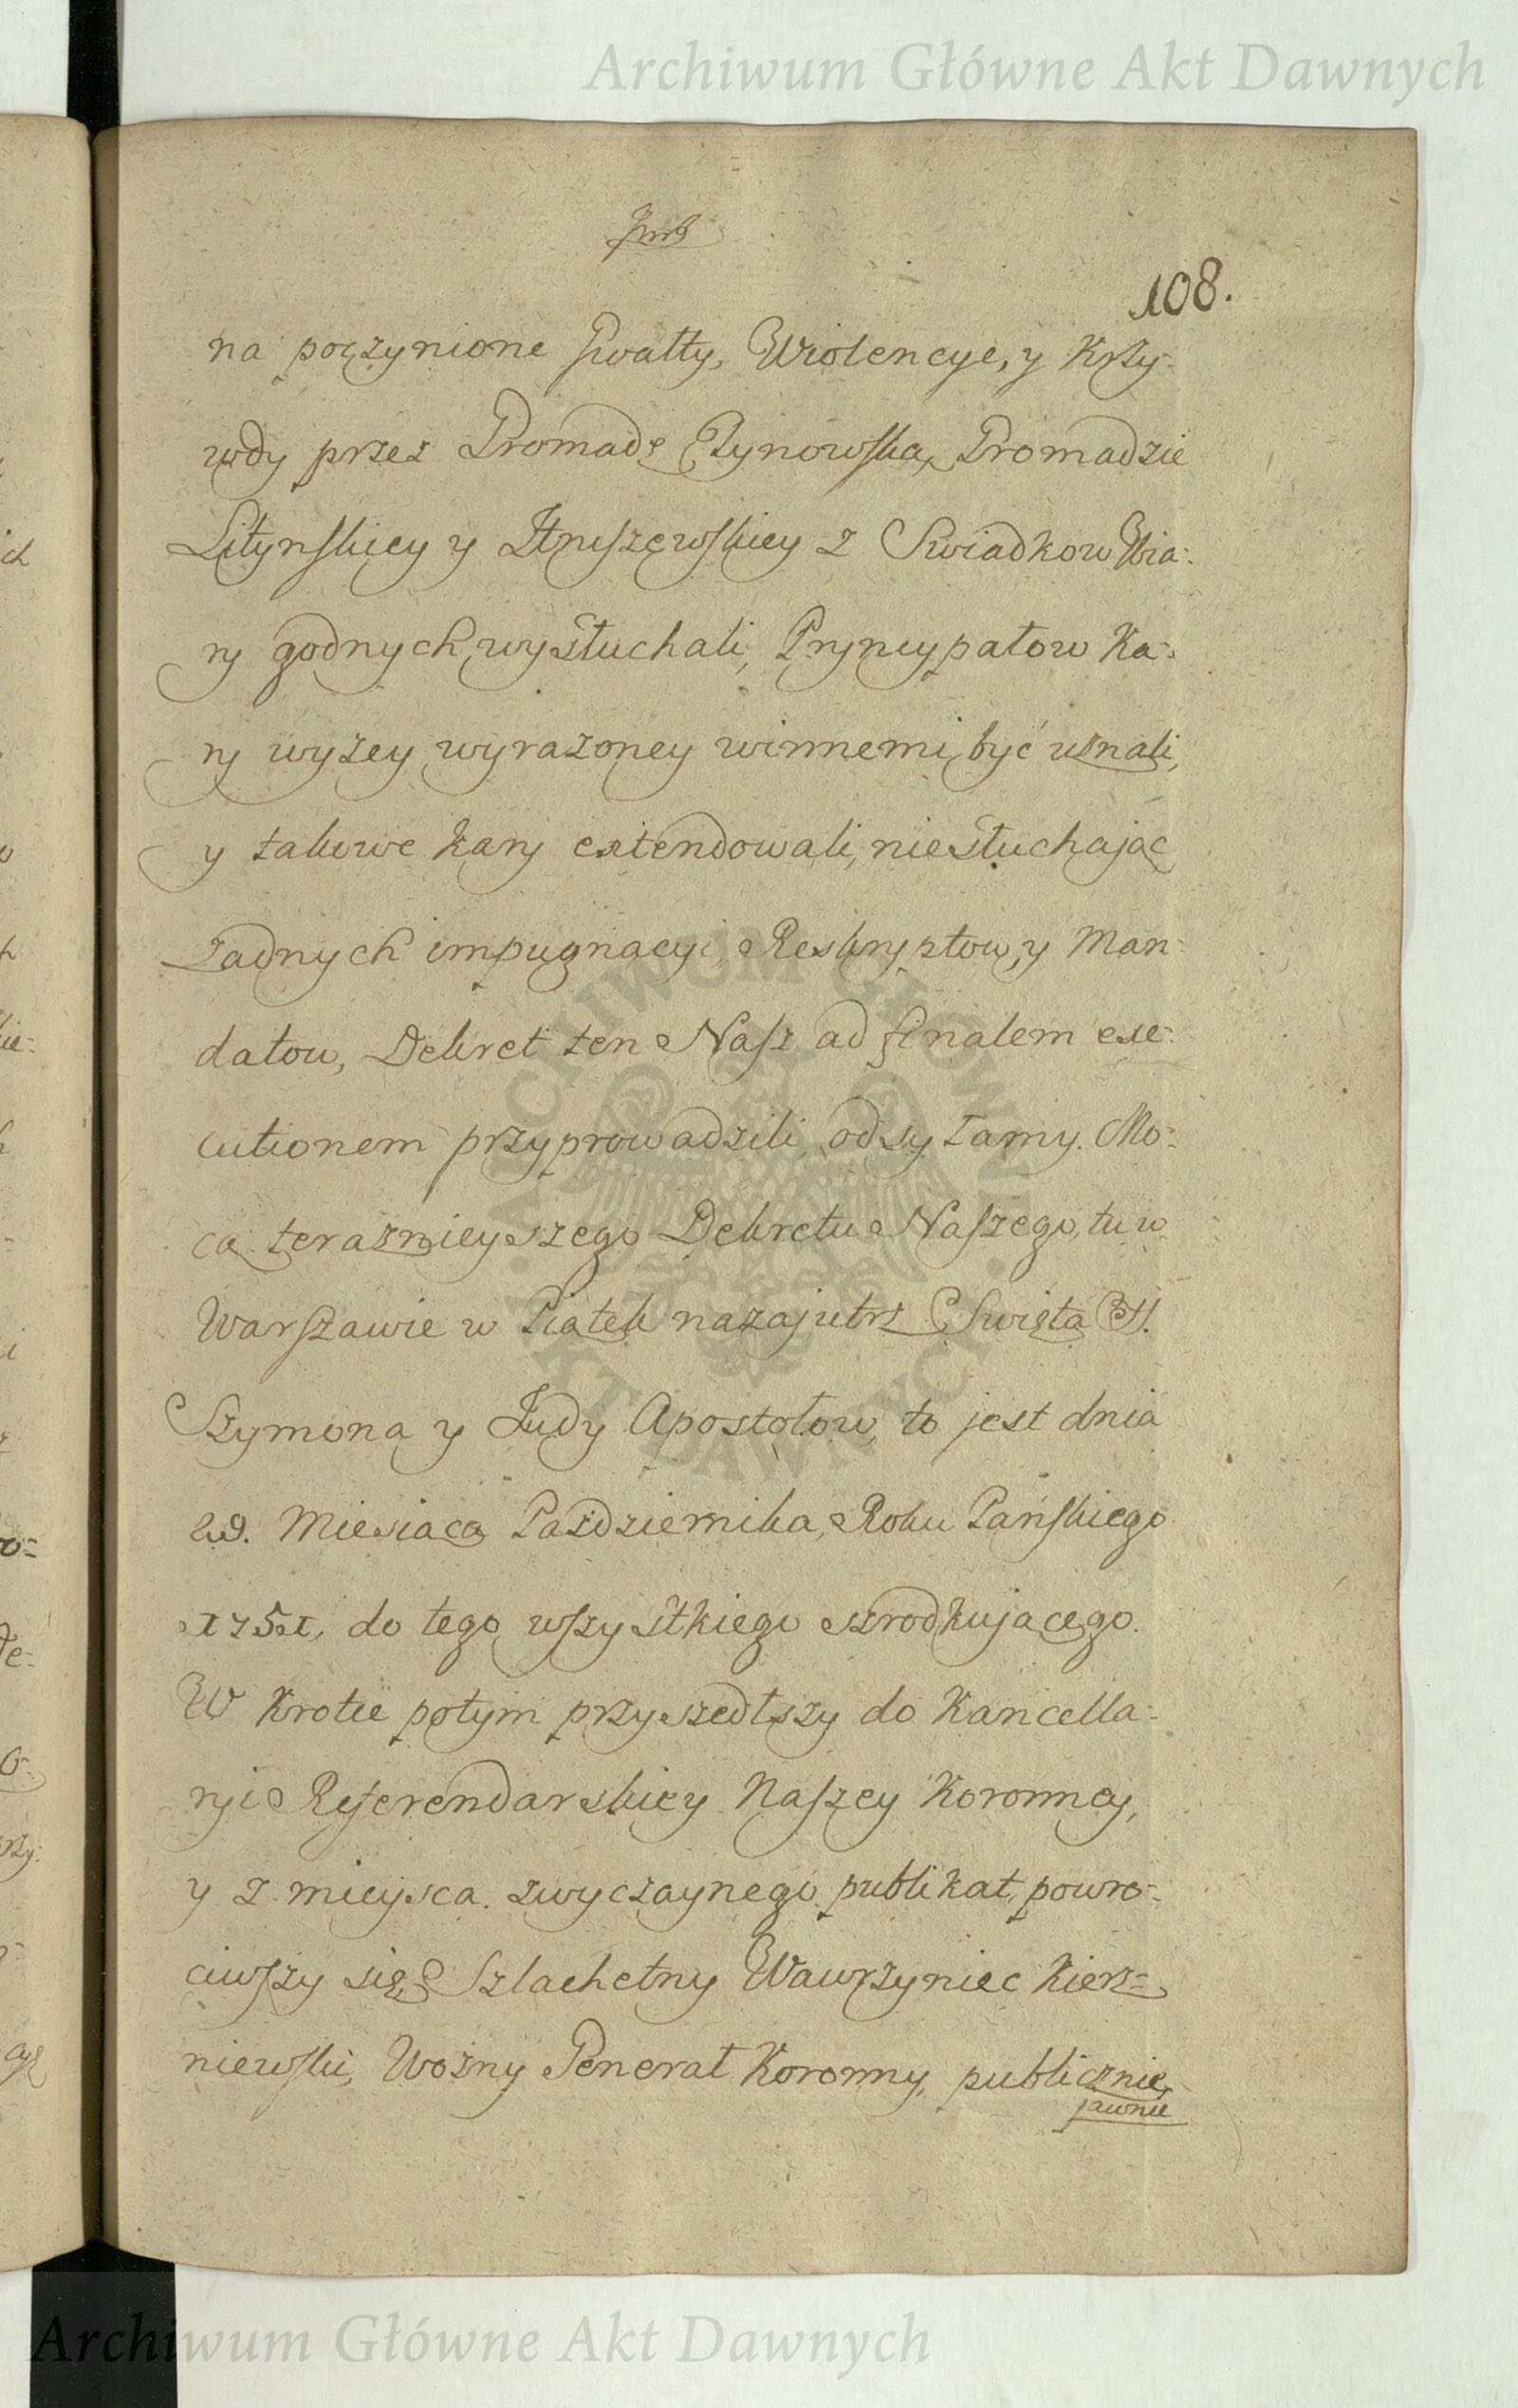 Archiwum Główne Akt Dawnych
108.
na poczynione Gwałty, Wiolencye, y Krzy-
wdy przez Gromadę Czynowską, Gromadzie
Lityńskiey y Hruszewskiey z Swiadkow Wia-
ry godnych wysłuchali, Pryncypałow Ka-
ry wyżey wyrażoney winnemi być uznali,
y takowe kary extendowali, niesłuchaiąc
żadnych impugnacyi, Reskryptow, y Man-
datow, Dekret ten Nasz ad finalem exe-
cutionem przyprowadzili, odsyłamy. Mo-
cą teraznieyszego Dekretu Naszego, tu w
Warszawie w Piątek nazajutrz Swięta SS.
Szymona y Judy Apostołow, to jest dnia
29. Miesiąca Października, Roku Pańskiego
1751, do tego wszystkiego szrodkującego.
W Krotce potym przyszedłszy do Kancella-
ryi Referendarskiey Naszey Koronney,
y z mieysca zwyczaynego publikat, powro-
ciwszy się, Szlachetny Wawrzyniec Kierz-
niewski, Woźny Generał Koronny, publicznie,
jawnie
Archiwum Główne Akt Dawnych